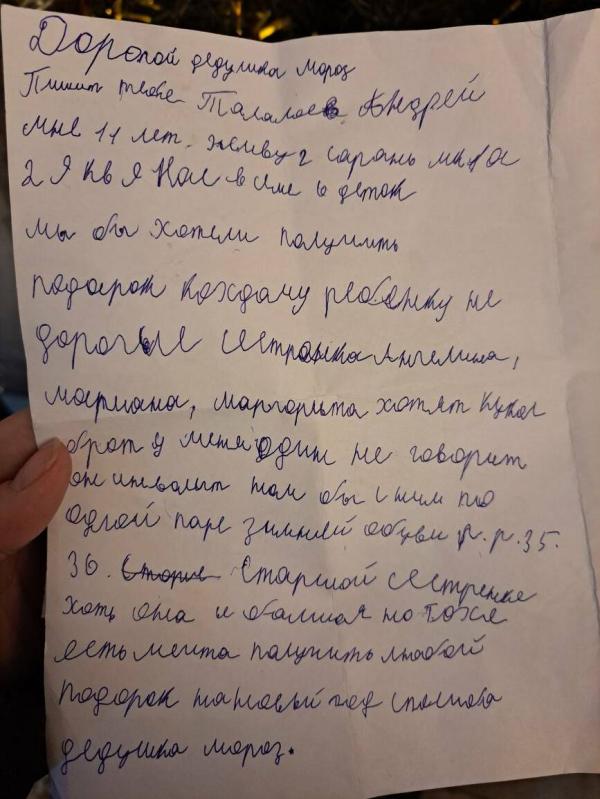 Дорогой дедушка мороз
Пишит тебе Талалаев Андрей
мне 11 лет. живу г сарань мкр
2 Я кв Я Нас в семе 6 деток
мы бы хотели палучить
подарок каждаму ребёнку не
дорогые сестрёнка Ангелина,
мариана, маргорыта хотят кукол
брат у меня один не говорит
он инвалыт нам бы с ним по
одной паре зимней обуви р.р.35.
36. Старше Старшой сестренке
хоть она и обалшая но тоже
есть мечта палучить любой
подорок на новый год спасиба
дедушка мороз.